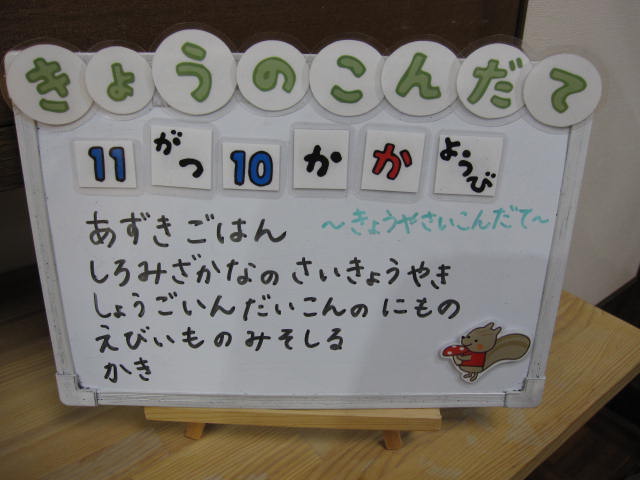 きょうのこんだて
11がつ10かかようび
～きょうやさいこんだて～
あずきごはん
しろみざかなのさいきょうやき
しょうごいんだいこんのにもの
えびいものみそしる
かき